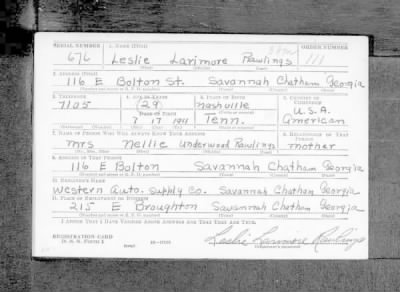 SERIAL NUMBER 1. NAME (Print) ORDER NUMBER
676 Leslie Larimore Rawlings 111
(First) (Middle) (Last)
2. ADDRESS (Print)
116 E Bolton St. Savannah Chatham Georgia
3. TELEPHONE 4. AGE IN YEARS 5. PLACE OF BIRTH 6. COUNTRY OF CITIZENSHIP
7105 (29) Nashville U.S.A.
DATE OF BIRTH
7 17 1911 Tenn. American
7. NAME OF PERSON WHO WILL ALWAYS KNOW YOUR ADDRESS 8. RELATIONSHIP OF THAT PERSON
Mrs Nellie Underwood Rawlings mother
(Mr., Mrs., Miss) (First) (Middle) (Last)
9. ADDRESS OF THAT PERSON
116 E Bolton Savannah Chatham Georgia
10. EMPLOYER'S NAME
Western Auto. Supply Co. Savannah Chatham Georgia
11. PLACE OF EMPLOYMENT OR BUSINESS
215 E Broughton Savannah Chatham Georgia
I AFFIRM THAT I HAVE VERIFIED ABOVE ANSWERS AND THAT THEY ARE TRUE.
REGISTRATION CARD
D. S. S. FORM 1 (over) 16-17105
Leslie Larimore Rawlings